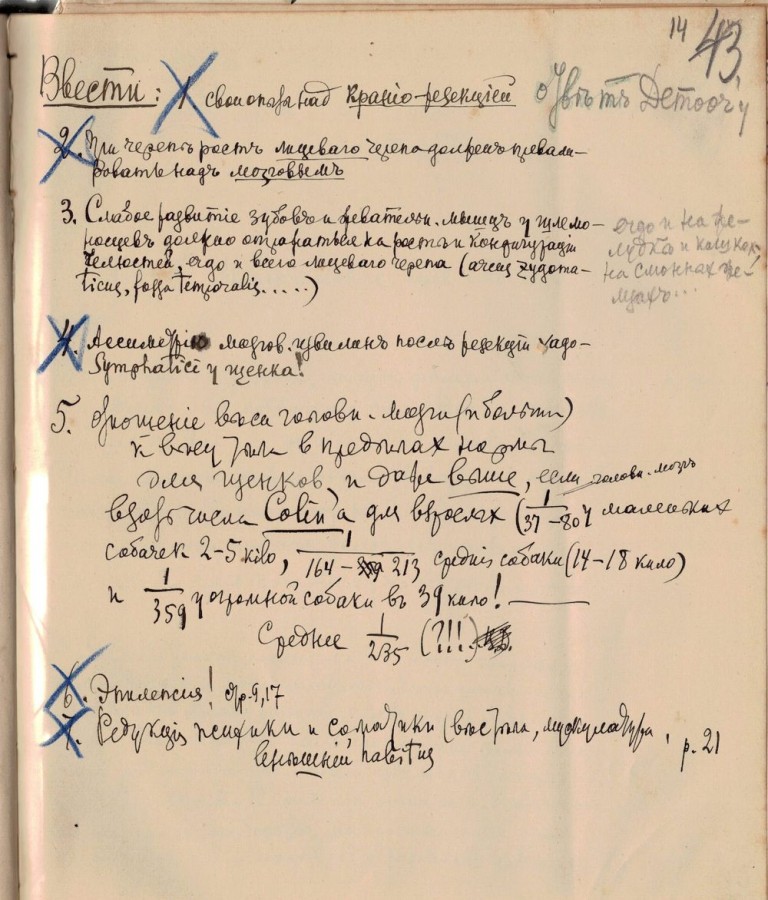 14 43
Ввести: 1 свои опыты над кранiо-резекцiей
2. При черепъ ростъ лицеваго черепа долженъ превали-
ровать надъ мозговымъ
3. Слабое развитiе зубовъ и жевательн. мышцъ у
носцевъ должно отразиться на ростѣ и конфигурацiи
челюстей, ergo и всего лицеваго черепа (arcus zygoma-
ticus, fossa temporalis.....)
ergo и на же-
лудка и кишках,
на слюнных же-
лезахъ...
4. Ассиметрiю мозгов. извилинъ послѣ резекцiи
Symphatici у щенка!
5. Отношенiе вѣса головн. мозга (и больш.)
к вѣсу тѣла в предѣлах нормы
для щенков, и даже выше, если головн. мозгъ
взять числа Colin'a для взрослых (1/37 – 80 у маленьких
собачек 2-5 kilo, 1/164 – 213 среднiе собаки (14–18 кило)
и 1/359 у огромной собаки въ 39 кило!
Среднее 1/235 (?!!.)
6. Эпилепсiя! стр. 9, 17
7. Редукцiя психики и соматики (вѣс тѣла, мускулатура,
внѣшнiй habitus р. 21